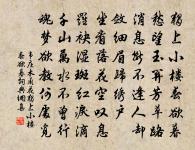 獨上小樓春欲暮
愁望玉關芳草路
消息斷不逢人卻
斂細眉歸繡戶
坐看落花空嘆息
羅袂濕斑紅淚滴
千山萬水不曾行
魂夢欲教何處覓
韋莊木蘭花獨上小樓
春欲暮詞典網書